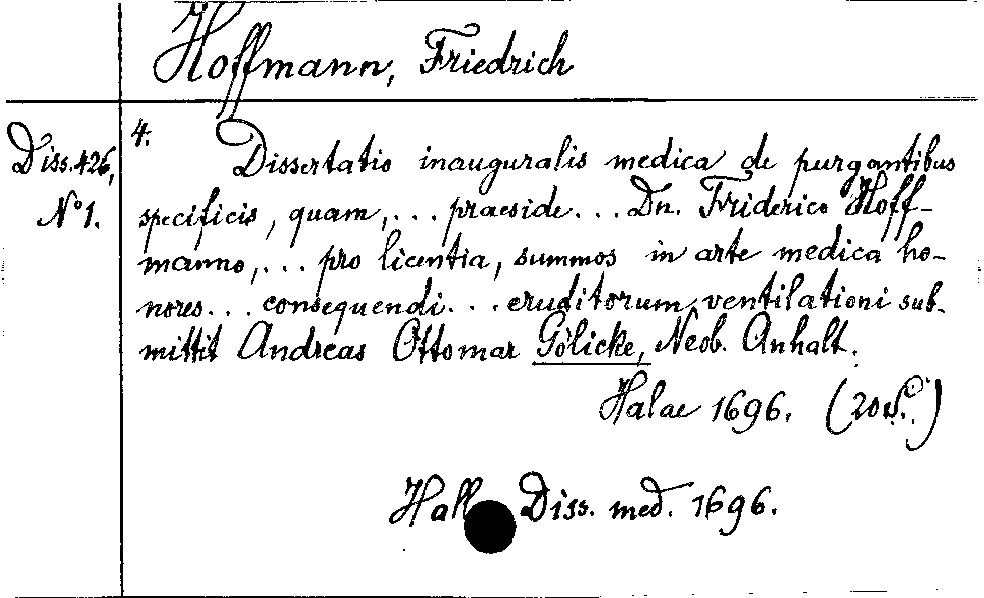 Hoffmann, Friedrich
Diss. 426,
N° 1.
4.
Dissertatio inauguralis medica de purgantibus
specificis, quam, ... praeside ... Dn. Friderico Hoff-
manno, ... pro licentia, summos in arte medica ho-
nores ... consequendi ... eruditorum ventilationi sub-
mittit Andreas Ottomar Gölicke, Neob. Anhalt.
Halae 1696. (20 S.)
Hall Diss. med. 1696.